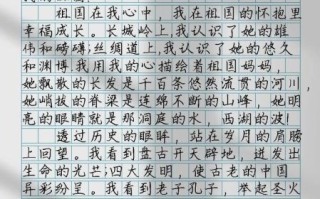 祖国在我心中，我在祖国的怀抱里
幸福成长。长城岭上，我认识了她的雄
伟和磅礴；丝绸道上，我认识了她的悠久
和渊博我用我的心描绘着祖国妈妈，
她飘散的长发是千百条悠然流贯的河川，
她峭拔的脊梁是连绵不断的山峰，她明
亮的眼睛就是那洞庭的水，西湖的波！
透过历史的眼眸，站在岁月的肩膀
上回望。我看到盘古开天辟地，迸发出
生命的光芒；四大发明，使古老的中国
异彩纷呈。我看到老子孔子，举起圣火